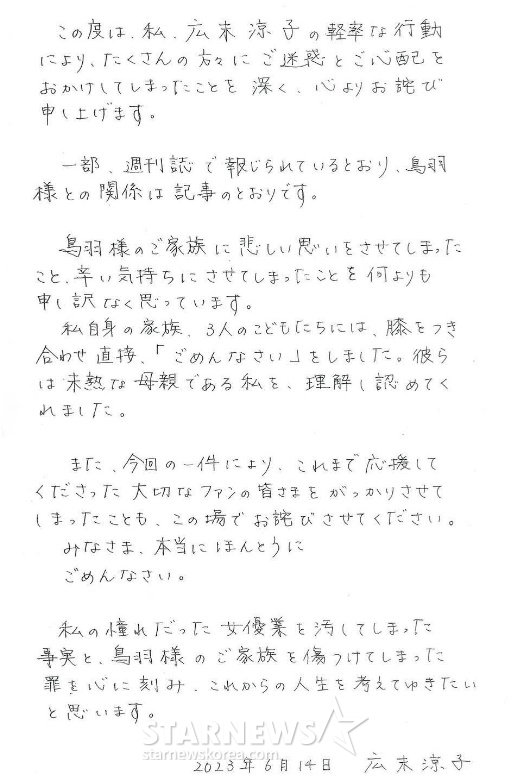 この度は、私、広末涼子の軽率な行動
により、たくさんの方々にご迷惑とご心配を
おかけしてしまったことを深く、心よりお詫び
申し上げます。
一部、週刊誌で報じられているとおり、鳥羽
様との関係は記事のとおりです。
鳥羽様のご家族に悲しい思いをさせてしまった
こと、辛い気持ちにさせてしまったことを何よりも
申し訳なく思っています。
私自身の家族、3人のこどもたちには、膝をつき
合わせ直接、「ごめんなさい」をしました。彼ら
は未熟な母親である私を、理解し認めてく
れました。
また、今回の一件により、これまで応援して
くださった大切なファンの皆さまをがっかりさせて
しまったことも、この場でお詫びさせてください。
みなさま、本当にほんとうに
ごめんなさい。
私の憧れだった女優業を汚してしまった
事実と、鳥羽様のご家族を傷つけてしまった
罪を心に刻み、これからの人生を考えてゆきたい
と思います。
STARNEWS
starnewskorea.com
2023年6月14日 広末涼子